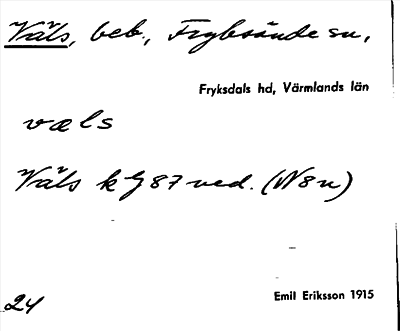 Väls, beb., Fryksände sn,
Fryksdals hd, Värmlands län
væls
Väls k G 87 ned. (N8n)
24
Emil Eriksson 1915